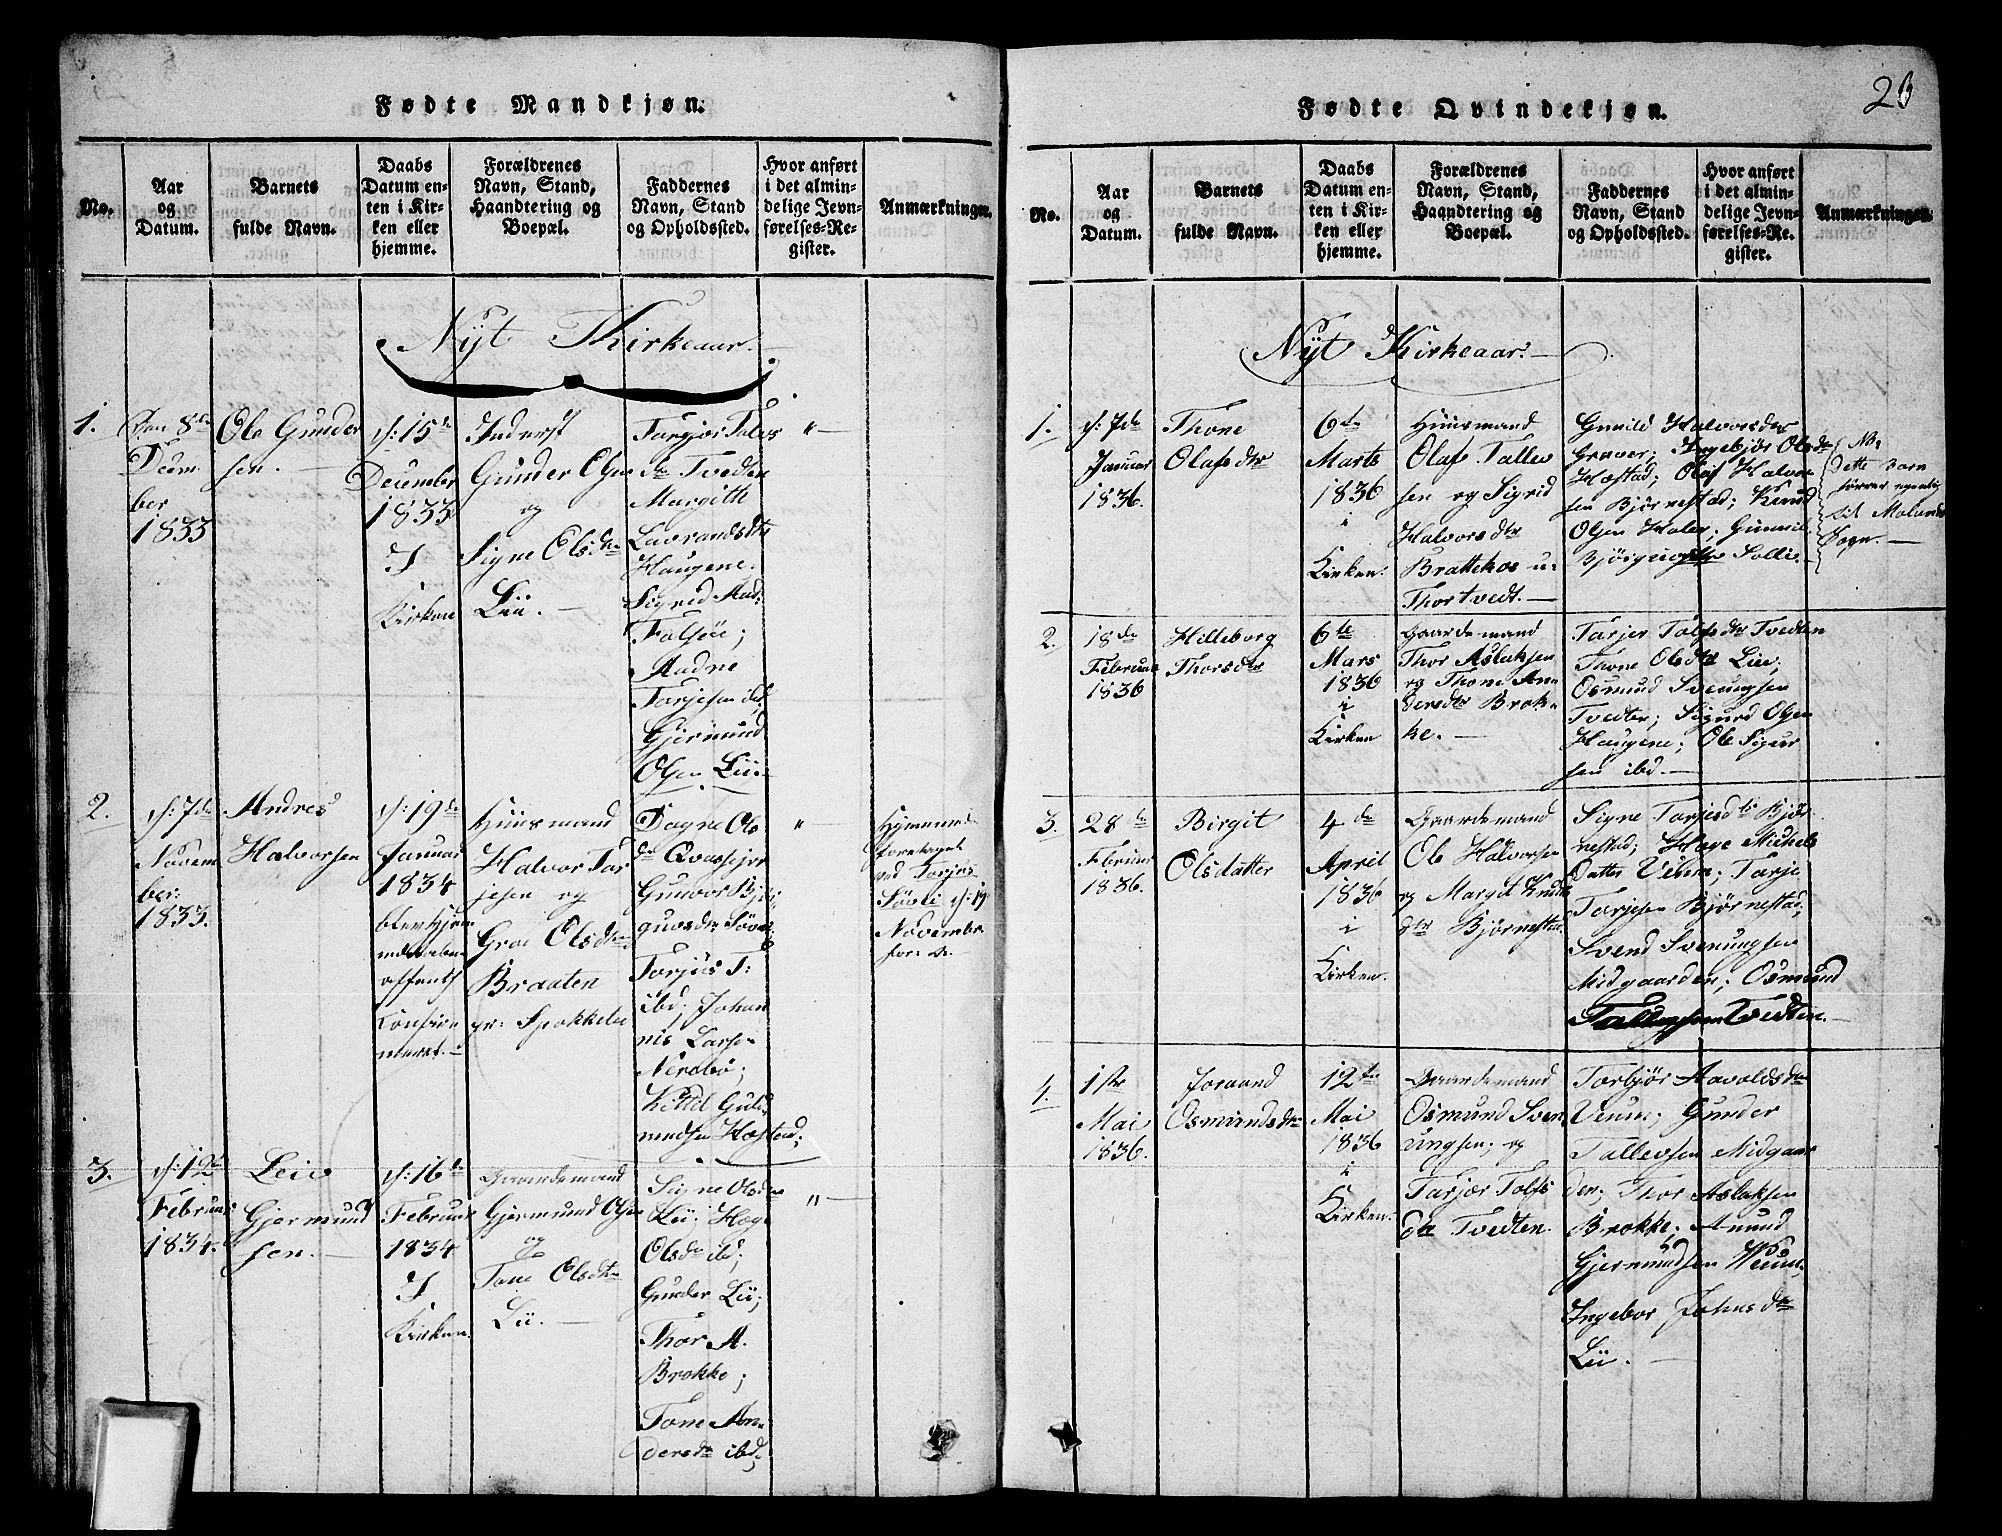 Fødte Mandkjøn.
No.
Aar
og
Datum.
Barnets
fulde Navn.
Daabs
Datum en-
ten i Kir-
ken eller
hjemme.
Forældrenes
Navn, Stand,
Haandtering og
Boepæl.
Faddernes
Navn, Stand
og Opholdssted.
Hvor anført
i det almin-
delige Jevn-
førelses-Re-
gister.
Anmærkninger.
Nyt Kirkeaar.
1.
Den 8de
Decem
ber
1833
Ole Gunder
sen.
d: 15de
December
1833
I
Kirken
Inderst
Gunder Olsen
og
Signe Olsdtr
Lii.
Targjer Tolvs
dtr Tvedten
Margitte
Lavrandsdtr
Haugene.
Sigrid Aad:
Aadne
Tarjesen ibd;
Gjermund
Olsen Lii.
"
2.
d: 7de
Novem
ber:
1833.
Andres
Halvorsen
d: 19de
Januar
1834
blev hjem
offentl
Confir
meret.
Huusmand
Halvor Tar
jesen og
Groe Olsdtr
Braaten
Dagne Ols
dtr
Gunvor Bjør
Tarjus T:
ibd; Johan
nis Larsen
Nerabø;
Kittil Gul
"
Hjemmed
foretaget
ved Tarjus
d: 19
Novembr
3.
d: 12te
Februar
1834.
Leiv
Gjermund
sen.
d: 16de
Februar
1834
I
Kirken
Gaardemand
Gjermund Olsen
og
Tone Olsdtr
Lii.
Signe Olsdtr
Lii; Hæge
Olsdtr ibd;
Gunder Lii;
Thor A.
Brokke;
Tone An
dersdtr ibd;
"
Fødte Qvindekjøn.
No.
Aar
og
Datum.
Barnets
fulde Navn.
Daabs
Datum en-
ten i Kir-
ken eller
hjemme.
Forældrenes
Navn, Stand,
Haandtering og
Boepæl.
Faddernes
Navn, Stand
og Opholdssted.
Hvor anført
i det almin-
delige Jevn-
førelses-Re-
gister.
Anmærkninger.
Nyt Kirkeaar.
1.
d: 7de
Januar
1836.
Thone
Olafsdtr
6te
Marts
1836
i
Kirken.
Huusmand
Olaf Tallev
sen og Sigrid
Halvorsdtr
Brattekos u:
Thortvedt.
Gunild Halvorsdtr
Graver; Ingebjør Olsdtr
Hæstad; Olaf Halvor
sen Bjørnestad; Knud
Olsen Holen; Gunnil
NB.
dette Barn
hører egentlig
til
Sogn.
2.
18de
Februar
1836
Hilleborg
Thorsdtr
6te
Mars
1836
i
Kirken
Gaardemand
Thor Aslaksen
og Thone An
dersdtr Brok
ke.
Tarjer Tolfsdtr Tvedten
Thone Olsdtr Lii;
Osmund Svenungsen
Tvedten; Sigurd Olsen
Haugene; Ole Sigur
sen ibd.
3.
28de
Februar
1836.
Birgit
Olsdatter
4de
April
1836
i
Kirken.
Gaardemand
Ole Halvorsen
og Margit Knuds
dtr Bjørnestad
Signe Tarjesdtr Bjør
nestad; Hæge Michels
Datter Viken; Tarje
Tarjesen Bjørnestad;
Svend Svenungsen
Midgaarden; Osmund
Tallevsen Tvedten.
4.
1ste
Mai
1836.
Joraand
Osmundsdtr
12te
Mai
1836
i
Kirken.
Gaardemand
Osmund Sven
ungsen; og
Tarjær Tolfs
dtr Tvedten.
Torbjør Aavoldsdtr
Veum; Gunder
Tallevsen Midgaar
den; Thor Aslaksen
Brokke; Amund
Gjermundsen Veum
Ingebor Johnsdtr
Lii.